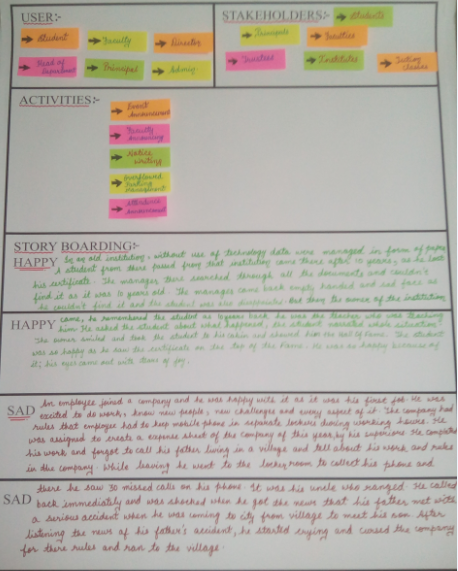 USER:-
Student
Faculty
Director
Head of Department
Principal
Admin
STAKEHOLDERS:-
Students
Principals
Faculties
Trustees
Institutes
Tution Classes
ACTIVITIES:-
Event
Faculty
Notice Writing
Management
Attendance
STORY BOARDING:-
HAPPY In an old institution, without use of technology data were managed in form of papers
A student from there passed from that institution came there after 10 years, as he lost
his certificate. The manager there searched through all the documents and couldn't
find it as it was 10 years old. The manager came back empty handed and sad face as
he couldn't find it and the student was also disturbed. But then the owner of the institution
HAPPY came, he remembered the student as 10 years back he was the teacher who was teaching
him. He asked the student about what happened, the student narrated whole situation.
The owner smiled and took the student to his cabin and showed him the Wall of Fame. The student
was so happy as he saw the certificate on the top of the Frame. He was so happy because of
it, his eyes came out with tears of joy.
SAD An employee joined a company and he was happy with it as it was his first job. He was
excited to do work, know new people, new challenges and every aspect of it. The company had
rules that employee had to keep mobile phone in separate lockers during working hours. He
was assigned to create a expense sheet of the company of this year, by his superiors. He completed
his work and forgot to call his father living in a village and tell about his work and rules
in the company. While leaving he went to the locker room to collect his phone and
SAD there he saw 30 missed calls on his phone. It was his uncle who ranged. He called
back immediately and was shocked when he got the news that his father met with
a serious accident when he was coming to city from village to meet his son. After
listening the news of his father's accident, he started crying and cursed the company
for there rules and ran to the village.